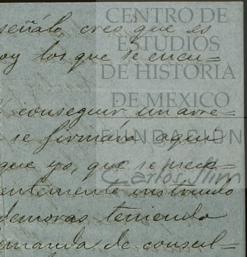 señálo, creo que es
oy los que se encu=
conseguir un arre=
se firmara aquí
que yo, que se nece=
entemente instruido
demoras, teniendo
manda de consul=
CENTRO DE
ESTUDIOS
DE HISTORIA
DE MEXICO
FUNDACIÓN
Carlos Slim